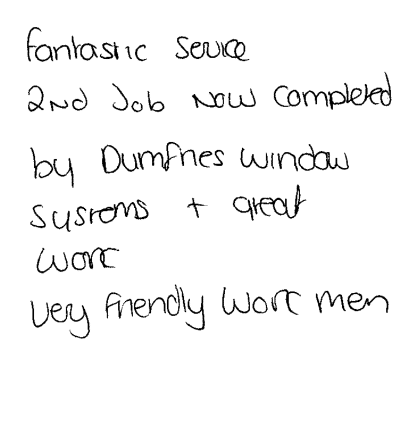 Fantastic Service
2nd Job Now Completed
by Dumfries Window
Systems + great
work
very friendly work men